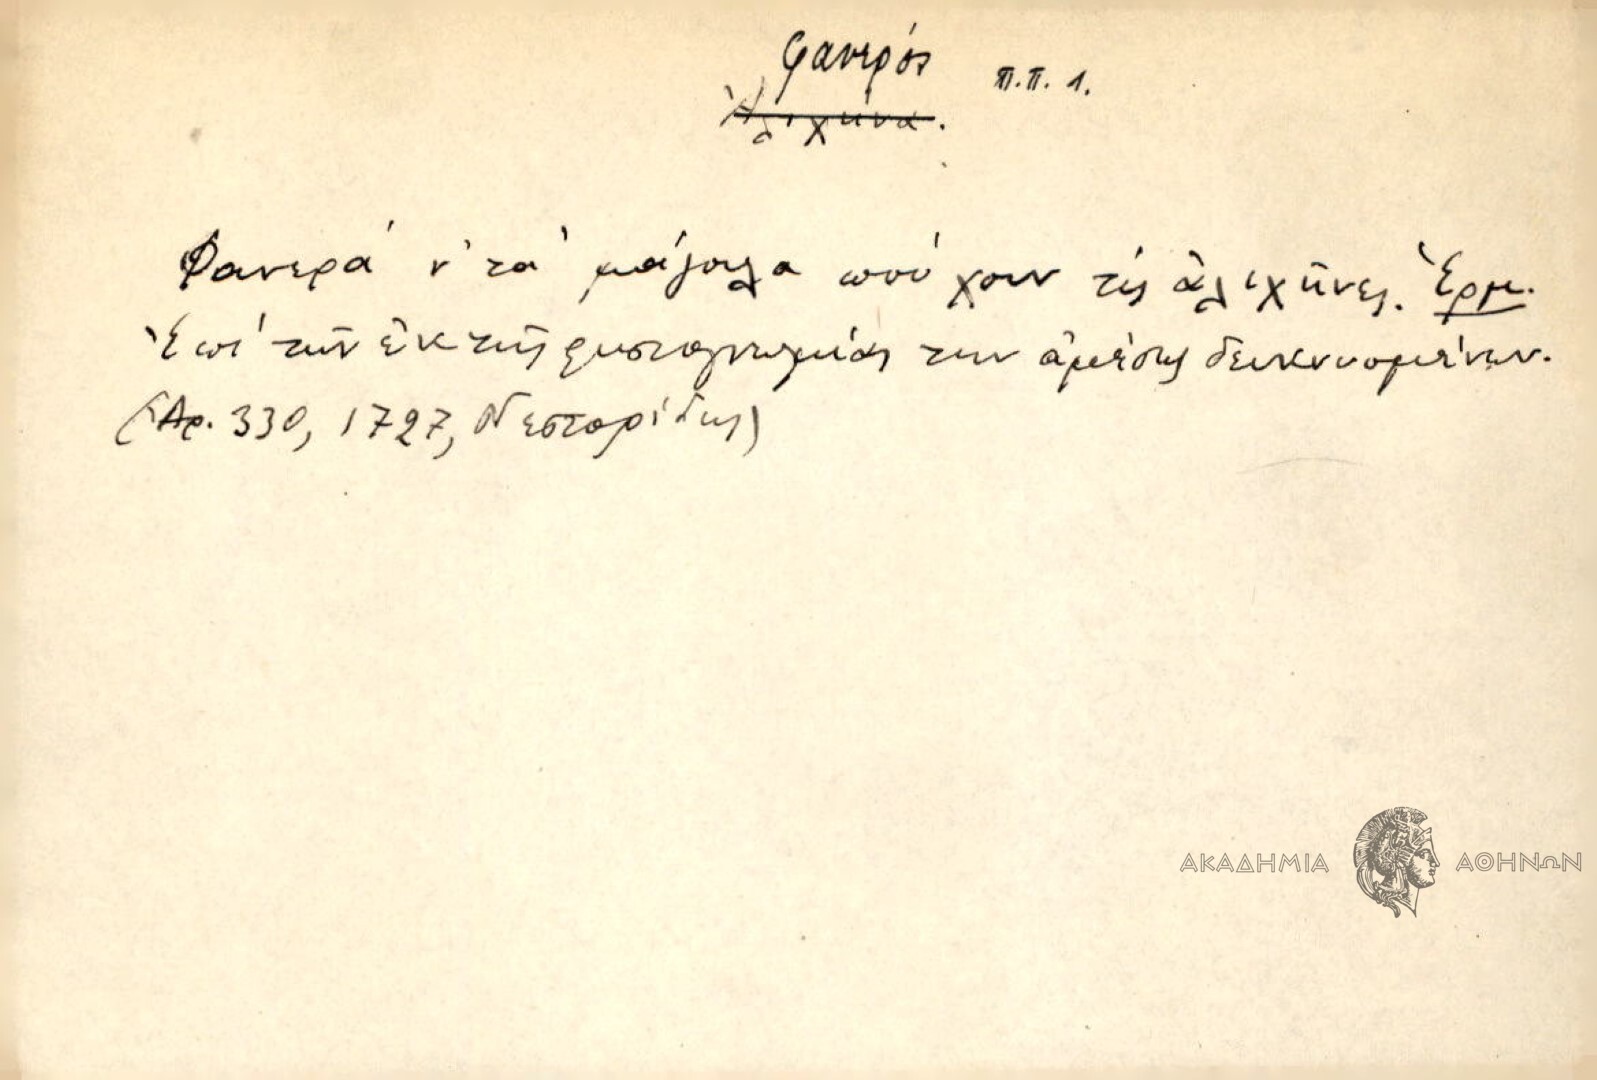 φανερός π.π. 1.
Ἀλιχήνα.
Φανερά ν' τά μάγουλα πού χουν τίς ἀλιχῆνες. Ἑρμ.
Ἐπί τῶν ἐκ τῆς φυσιογνωμίας των ἀμέσως δεικνυομένων.
(Ἀρ. 330, 1727, Νεστορίδης)
ΑΚΑΔΗΜΙΑ ΑΘΗΝΩΝ